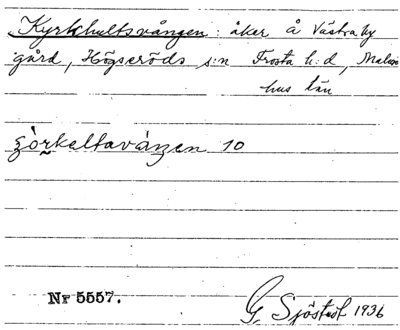 Kyrkhultsvången: åker å Västraby
gård, Högseröds s:n Frosta h:d, Malmö
hus län
10
Nr 5557.
G. Sjöstedt 1936